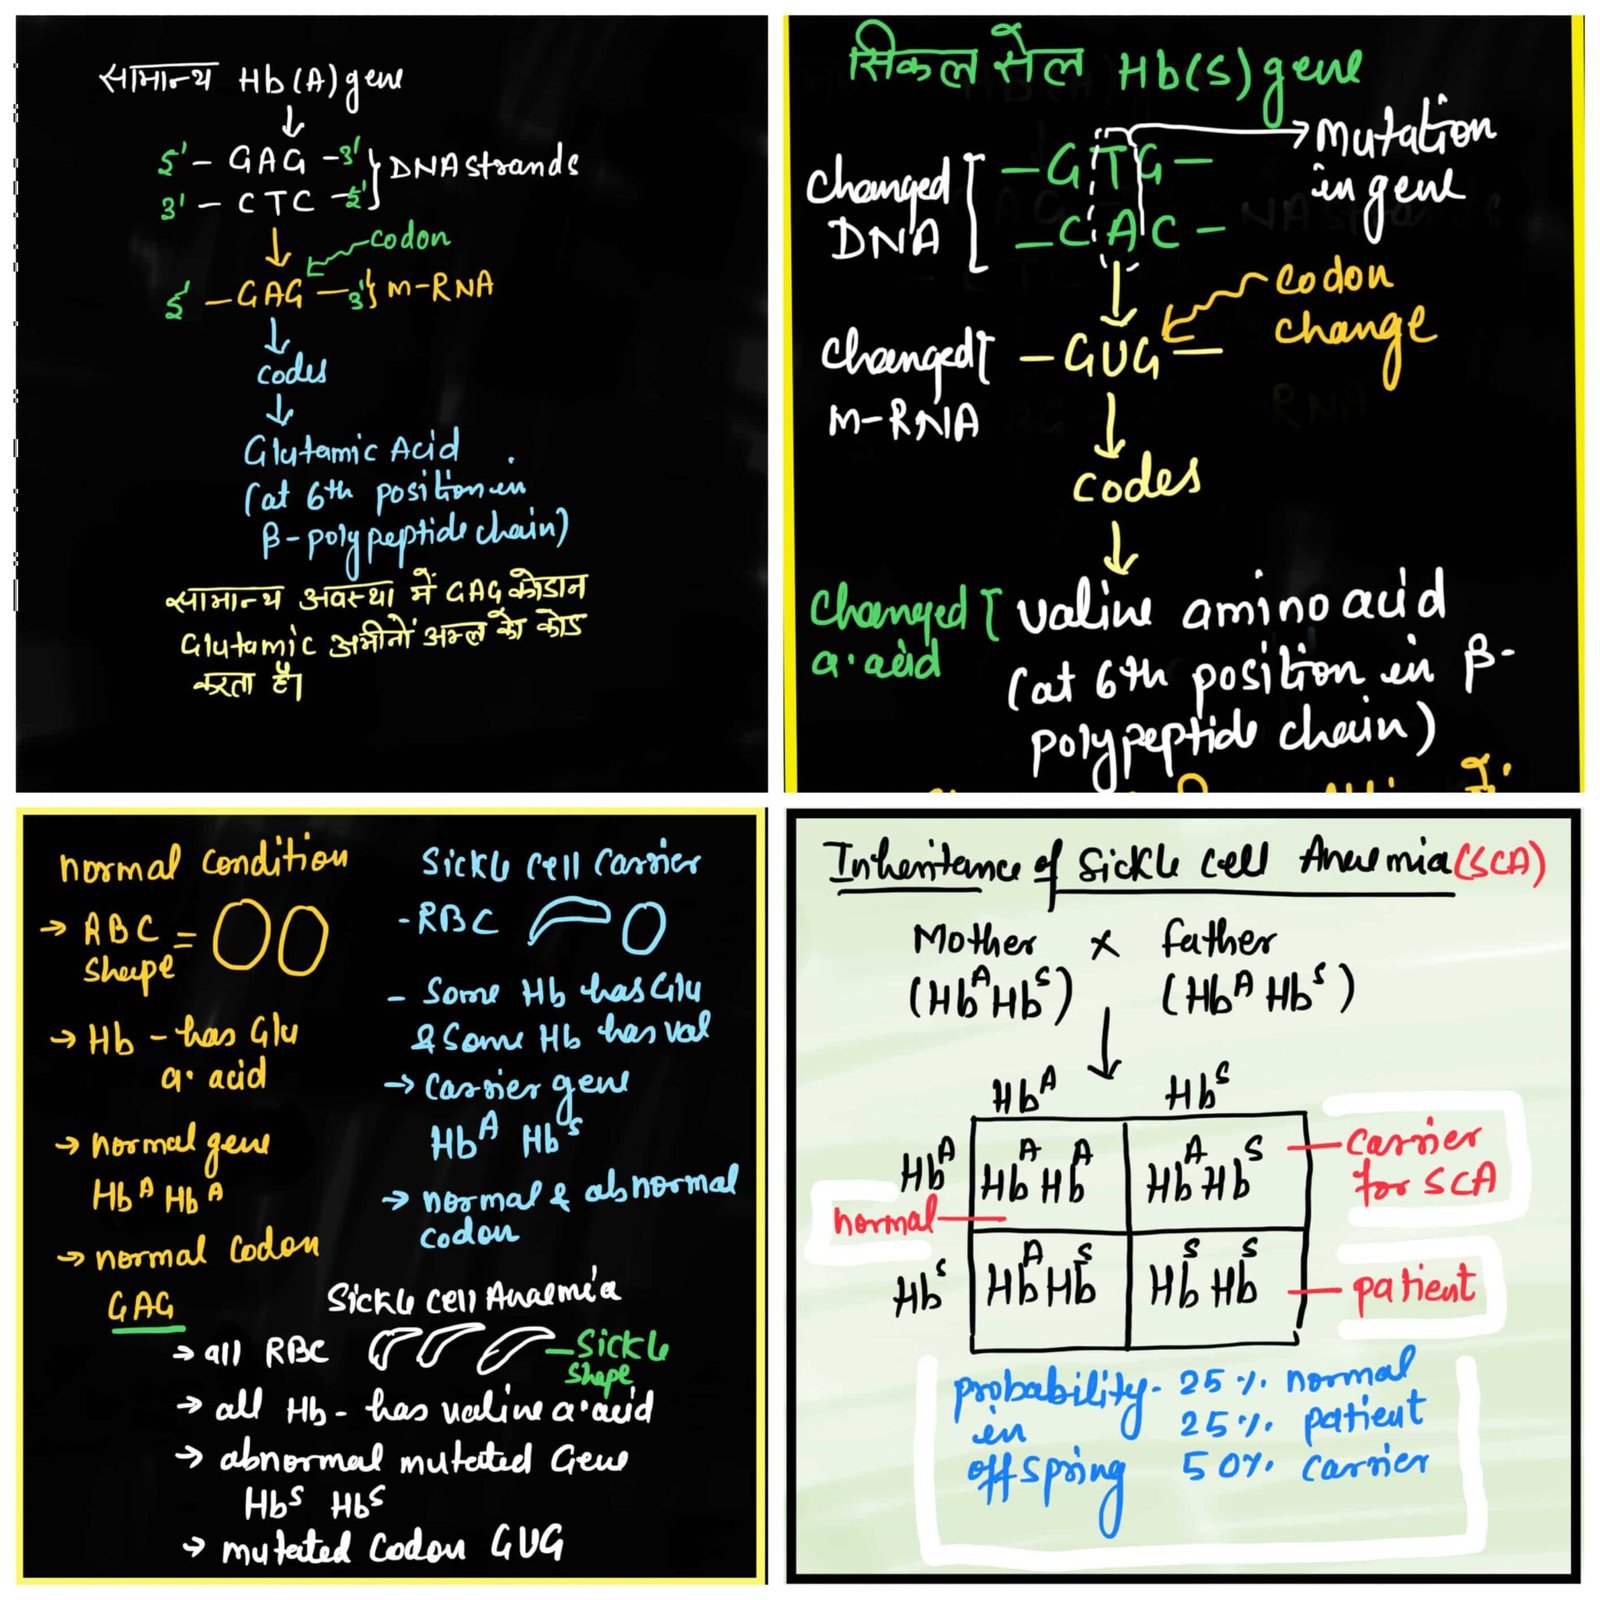 सामान्य Hb(A) gene
↓
5' – GAG – 3'
3' – CTC – 5'
} DNA strands
↓
codon
5' – GAG – 3' } m-RNA
↓
codes
↓
Glutamic Acid
(at 6th position in
β-polypeptide chain)
सामान्य अवस्था में GAG कोडान
Glutamic अमीनों अम्ल को कोड
करता है।
सिकल सेल Hb(S) gene
Changed DNA [
– GTG –
– CAC –
→ Mutation in gene
↓
Changed m-RNA [ – GUG –
codon change
↓
codes
↓
Changed a.acid [ valine amino acid
(at 6th position in β-
polypeptide chain)
normal condition
→ RBC =
Shape
→ Hb – has Glu
a. acid
→ normal gene
Hbᴬ Hbᴬ
→ normal codon
GAG
Sickle cell Carrier
- RBC
- Some Hb has Glu
& Some Hb has val
→ Carrier gene
Hbᴬ Hbˢ
→ normal & abnormal
codon
Sickle cell Anaemia
→ all RBC – Sickle
Shape
→ all Hb – has valine a.acid
→ abnormal mutated Gene
Hbˢ Hbˢ
→ mutated Codon GUG
Inheritance of Sickle cell Anaemia (SCA)
Mother × father
(HbᴬHbˢ) (HbᴬHbˢ)
↓
Hbᴬ Hbˢ
Hbᴬ HbᴬHbᴬ HbᴬHbˢ – Carrier
for SCA
normal
Hbˢ HbᴬHbˢ HbˢHbˢ – patient
probability - 25 % normal
in 25 % patient
offspring 50% carrier